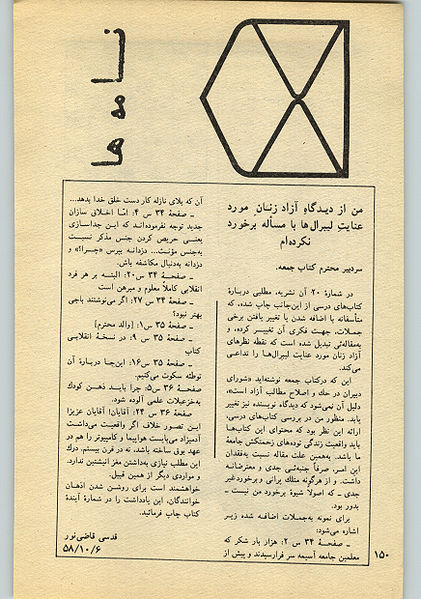 نامه‌ها
من از دیدگاهِ آزاد زنان مورد
عنایتِ لیبرال‌ها با مسأله برخورد
نکرده‌ام
سردبیر محترم کتاب جمعه.
در شمارهٔ ۲۰ آن نشریه، مطلبی دربارهٔ
کتاب‌های درسی از این‌جانب چاپ شده، که
متأسفانه با اضافه شدن یا تغییر یافتن برخی
جملات، جهت فکری آن تغییر کرده، و
به‌مقاله‌ئی تبدیل شده است که نقطه نظرهای
آزاد زنان مورد عنایت لیبرال‌ها را تداعی
می‌کند.
این که درکتاب جمعه نوشته‌اید «شورای
دبیران در حك و اصلاح مطالب آزاد است»،
دلیل آن نمی‌شود که دیدگاه نویسنده نیز تغییر
یابد. منظور من در بررسی کتاب‌های درسی،
ارائه این نظر بود که محتوای این کتاب‌ها
باید واقعیت زندگی توده‌های زحمتکش جامعهٔ
ما باشد. به‌همین علت مقاله نسبت به‌فقدان
این امر، صرفاً جنبه‌ئی جدی و معترضانه
داشت. و از هرگونه متلك پرانی و برخوردغیر
جدی ـ که اصولا شیوهٔ برخورد من نیست ـ
بدور بود.
برای نمونه به‌جملات اضافه شده زیر
اشاره می‌شود:
ـ صفحهٔ ۳۴ س ۲: هزار بار شکر که
معلمین جامعه آسیمه سر فرارسیدند و پیش از
آن که بلای نازله کار دست خلق خدا بدهد...
ـ صفحهٔ ۳۴ س ۴: امّا اخلاق سازان
جدید توجه نفرموده‌اند که این جداسازی
یعنی حریص کردن جنس مذکر نسبت
به‌جنس مؤنث... دزدانه بپرس «چرا!» و
دزدانه به‌دنبال مکاشفه باش.
ـ صفحهٔ ۳۴ س۲۰: البته بر هر فرد
انقلابی کاملاً معلوم و مبرهن است
ـ صفحهٔ ۳۴ س ۲۷: اگر می‌نوشتند باجی
بهتر نبود؟
ـ صفحهٔ ۳۵ س۱: [والد محترم]
ـ صفحهٔ ۳۵ س ۹: در نسخهٔ انقلابی
کتاب
ـ صفحهٔ ۳۵ س۱۶: این‌جا دربارهٔ آن
توطئه سکوت می‌کنیم.
صفحهٔ ۳۶ س۵: چرا باید ذهن کودك
به‌خزعبلات علمی آلوده شود.
صفحهٔ ۳۶ س ۲۴: آقایان! آقایان عزیز!
این تصور خلاف اگر واقعیت می‌داشت
آدمیزاد می‌بایست هواپیما و کامپیوتر را هم در
عهد بوق ساخته باشد، نه در قرن بیستم. درك
این مطلب نیازی به‌داشتن مغز انیشتین ندارد.
و مواردی دیگر از همین قبیل.
خواهشمند است برای روشن شدن اذهان
خوانندگان، این یادداشت را در شمارهٔ آیندهٔ
کتاب چاپ فرمائید.
قدسی قاضی‌نور
۵۸/۱۰/۶
۱۵۰